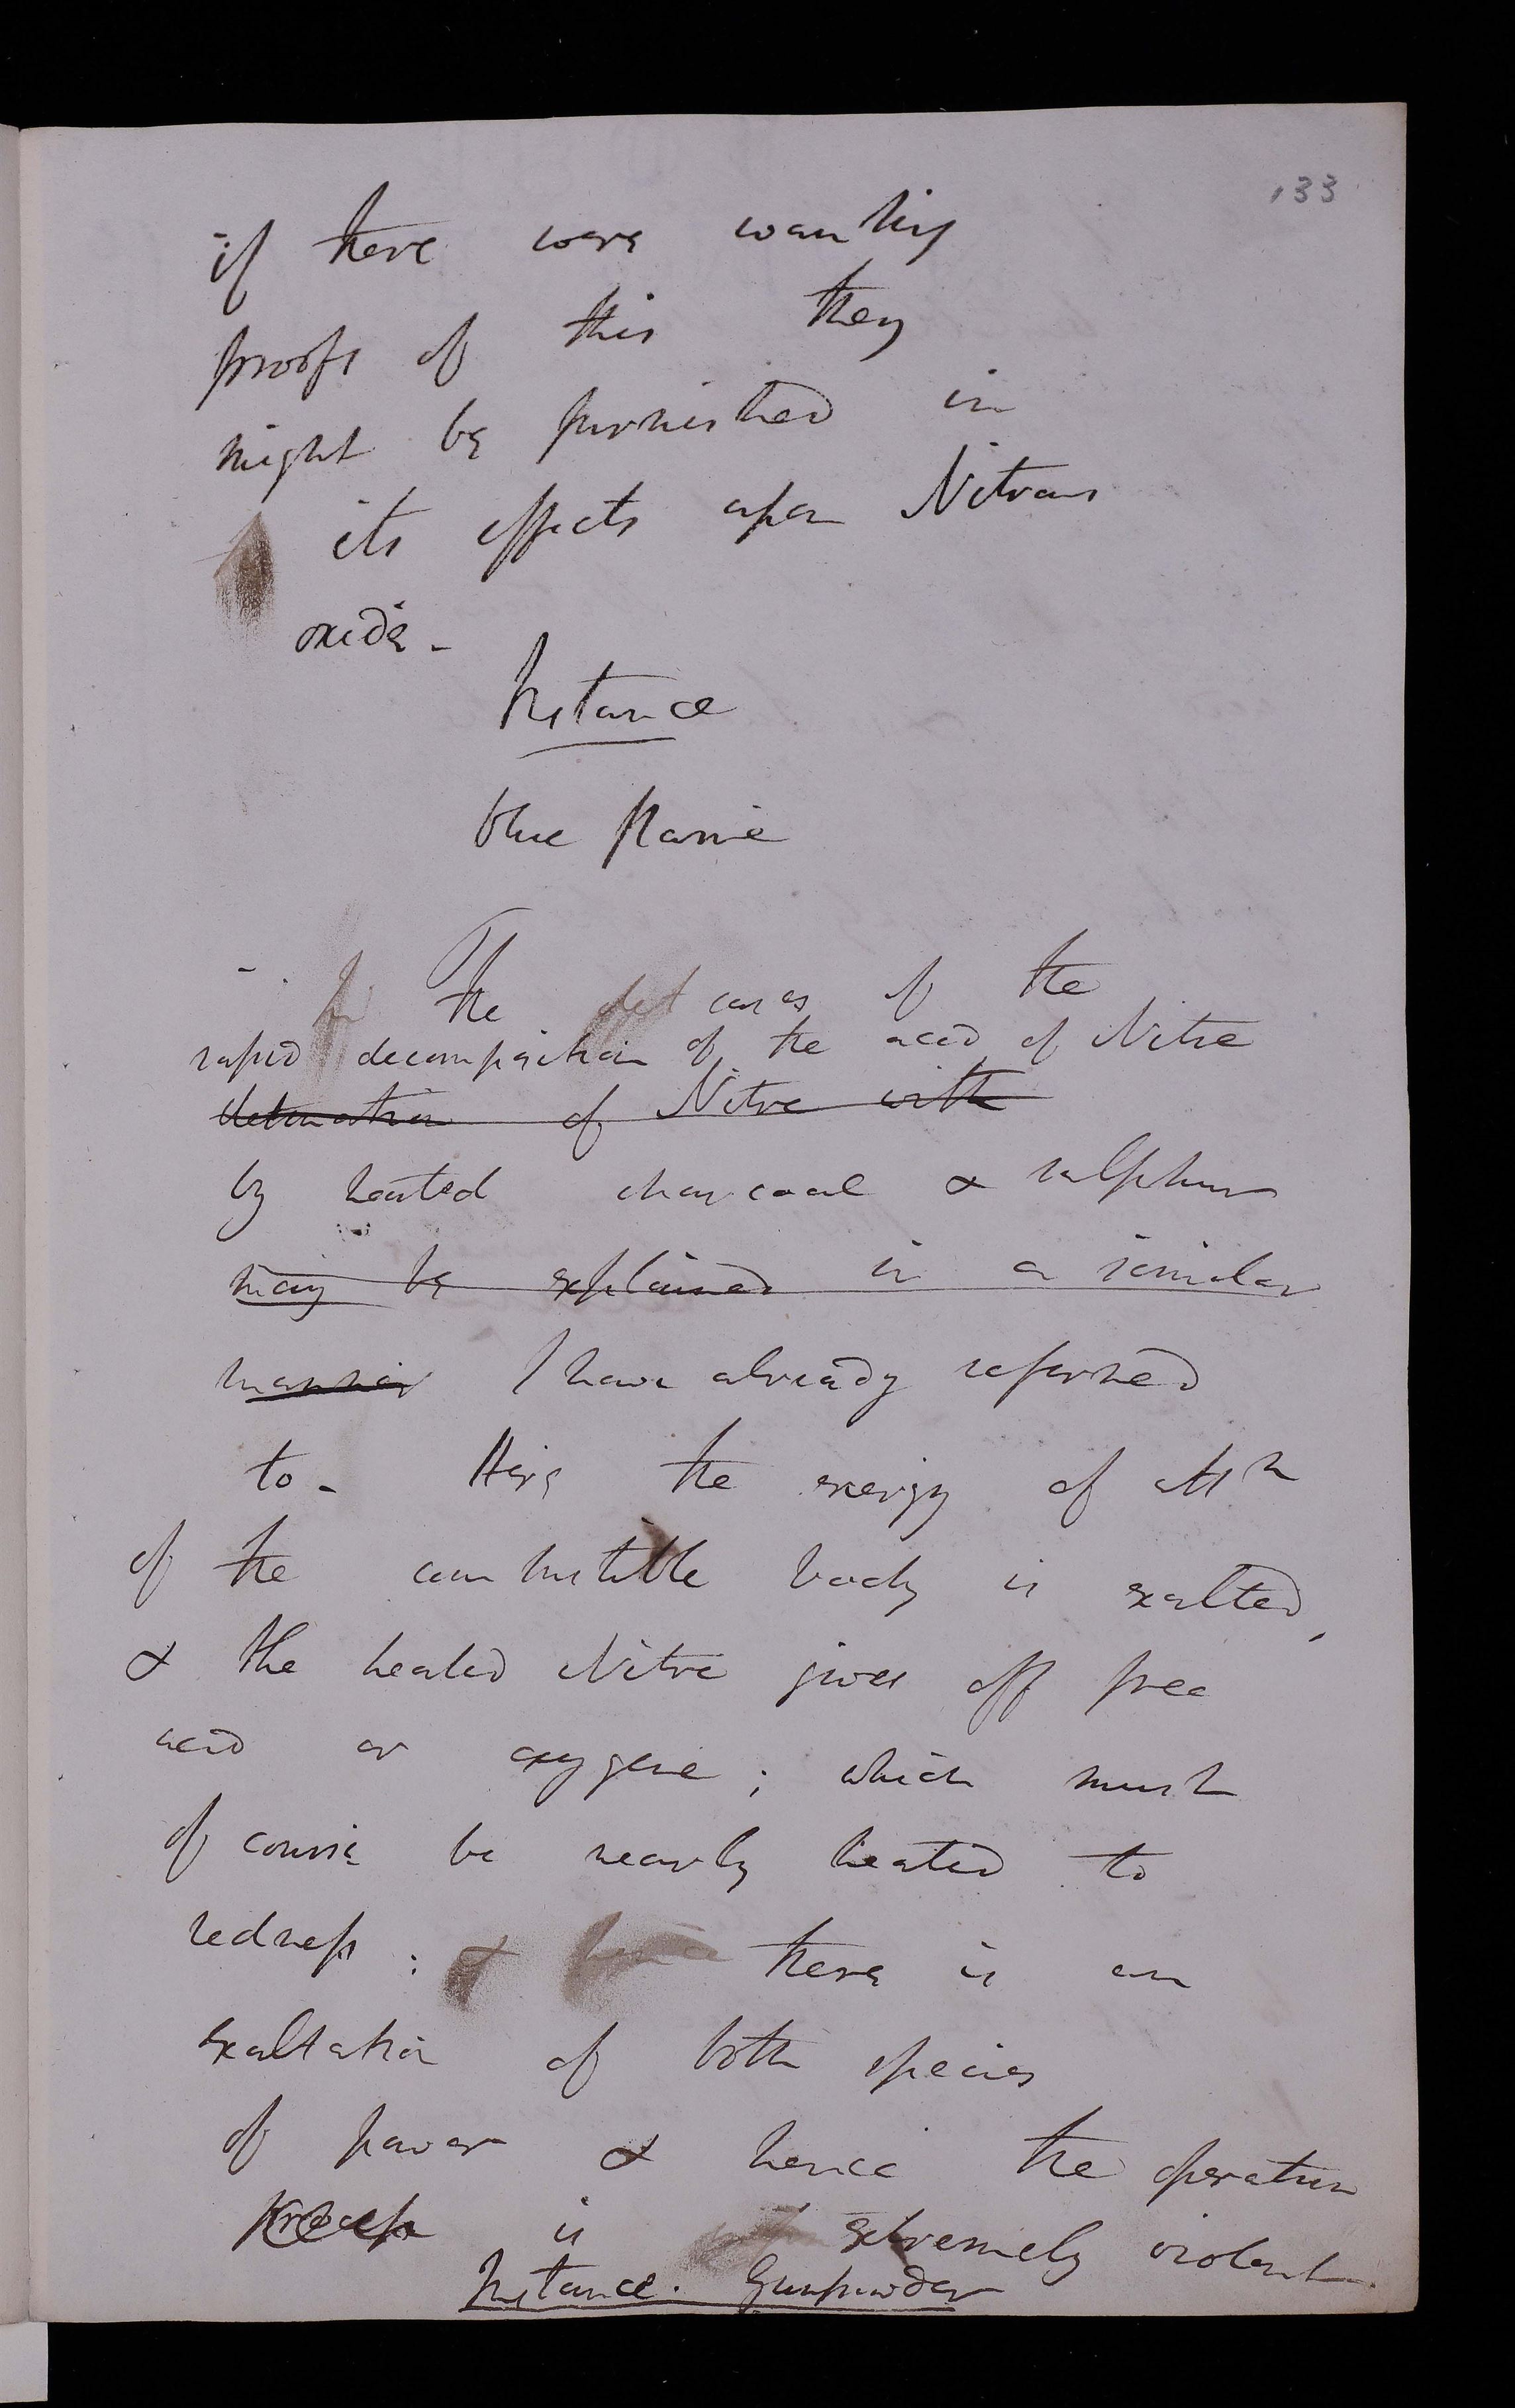 133
if there were wanting
proofs of this they
might be furnished in
its effects upon Nitrous
oxide -
Instance
blue flame
In The det cases of the
rapid decomposition of the acid of Nitre
detonation of Nitre with
by heated charcoal & sulphur
may be explained in a similar
manner I have already referred
to - Here the energy of attn
of the combustible body is exalted,
& the heated Nitre gives off free
acid or oxygene; which must
of course be nearly heated to
redness: & there is an
exaltation of both species
of power & hence the operation
process is extremely violent.
Instance. Gunpowder